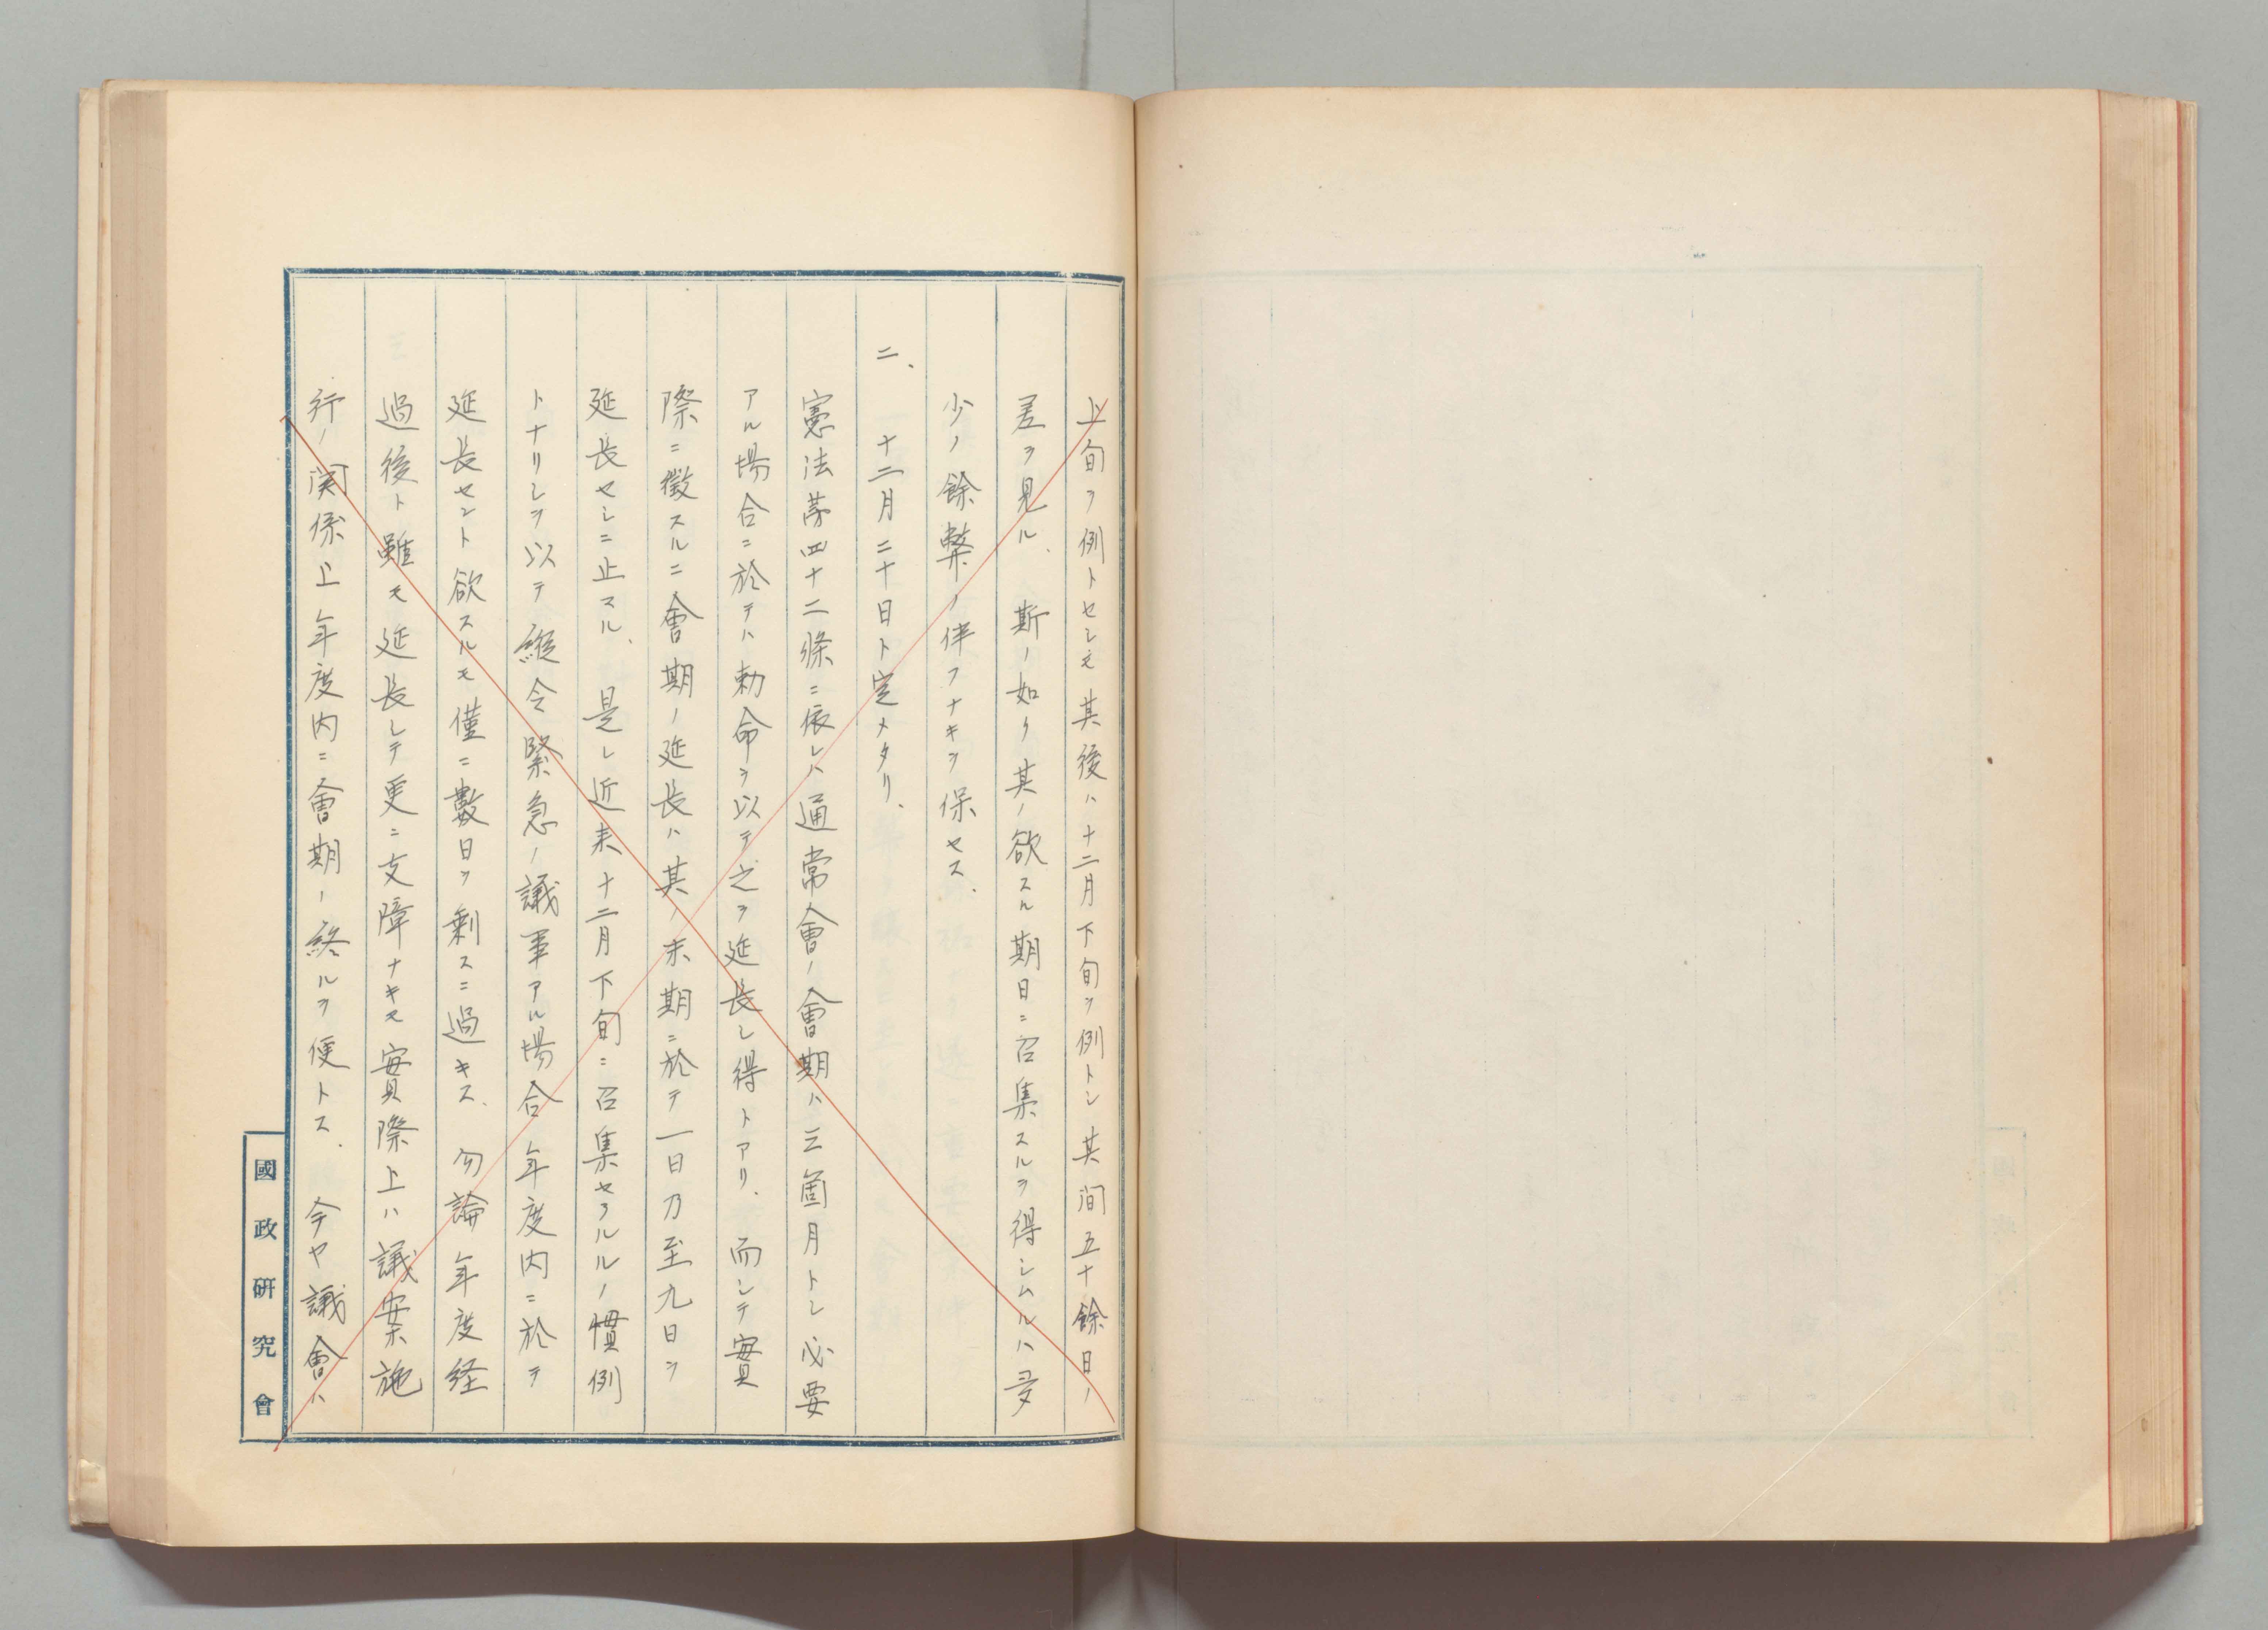 上旬ヲ例トセシモ其後ハ十二月下旬ヲ例トシ其间五十餘日ノ
差ヲ見ル、斯ノ如ク其ノ欲スル期日ニ召集スルヲ得シムルハ多
少ノ餘弊ノ伴フナキヲ保セス、
二、十二月二十日ト定メタリ、
憲法第四十二條ニ依レハ通常會ノ會期ハ三箇月トシ必要
アル場合ニ於テハ勅命ヲ以テ之ヲ延長シ得トアリ、而シテ實
際ニ徴スルニ會期ノ延長ハ其ノ末期ニ於テ一日乃至九日ヲ
延長セシニ止スル、是レ近来十二月下旬ニ召集セラルルノ慣例
トナリシヲ以テ縦令緊急ノ議事アル場合年度内ニ於テ
延長セント欲スルモ僅ニ數日ヲ剰スニ過キス、勿論年度経
過後ト雖モ延長シテ更ニ支障ナキモ實際上ハ議案施
行ノ関係上年度内ニ會期ノ終ルヲ便トス、今ヤ議會ハ
國政研究會